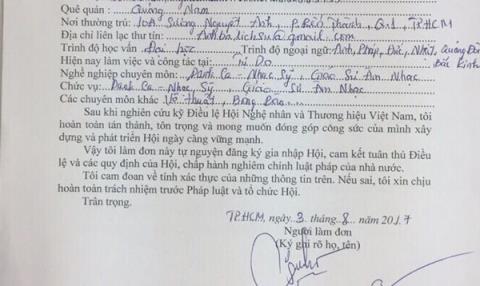 Quê quán : Quảng Nam
Nơi thường trú: 10A Sương Nguyệt Ánh, P. Bến Thành, Q.1, TP.HCM
Địa chỉ liên lạc thư tín: @gmail.com
Trình độ học vấn Đại học Trình độ ngoại ngữ Anh, Pháp, Đức, Nhật, Quảng Đông Bắc Kinh
Hiện nay làm việc và công tác tại: Tự Do
Nghề nghiệp chuyên môn: Danh Ca - Nhạc Sỹ, Giáo Sư Âm Nhạc
Chức vụ: Danh Ca - Nhạc Sỹ, Giáo Sư Âm Nhạc
Các chuyên môn khác Võ thuật, Bóng Bàn
Sau khi nghiên cứu kỹ Điều lệ Hội Nghệ nhân và Thương hiệu Việt Nam, tôi
hoàn toàn tán thành, tôn trọng và mong muốn đóng góp công sức của mình xây dựng
và phát triển Hội ngày càng vững mạnh.
Vậy tôi làm đơn này tự nguyện đăng ký gia nhập Hội, cam kết tuân thủ Điều
lệ và các quy định của Hội, chấp hành nghiêm chỉnh luật pháp của nhà nước.
Tôi cam đoan về tính xác thực của những thông tin trên. Nếu sai, tôi xin chịu
hoàn toàn trách nhiệm trước Pháp luật và tổ chức Hội.
Trân trọng.
TP.HCM, ngày 3 tháng 8 năm 2017
Người làm đơn
(Ký ghi rõ họ, tên)